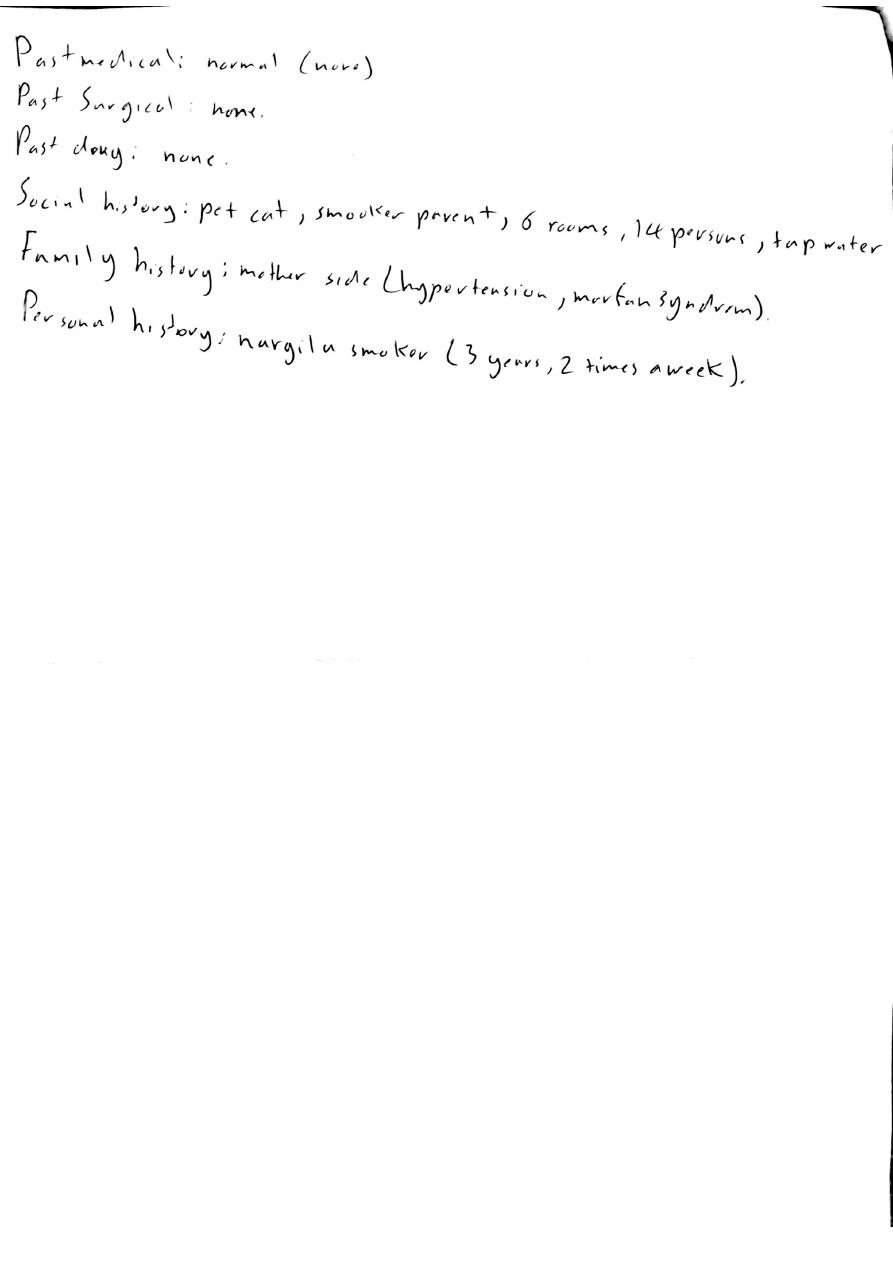 Past medical: normal (none)
Past Surgical: none.
Past drug: none.
Social history: pet cat, smooker parent, 6 rooms, 14 persons, tap water
Family history: mother side (hypertension, marfan syndrom).
Personal history: nargila smoker (3 years, 2 times a week).